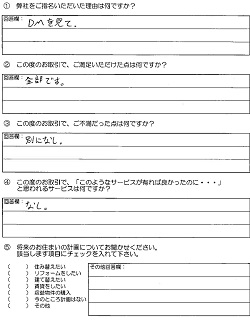 ① 弊社をご指名いただいた理由は何ですか？
回答欄： DMを見て．
② この度のお取引で、ご満足いただけた点は何ですか？
回答欄： 全部です。
③ この度のお取引で、ご不満だった点は何ですか？
回答欄： 別になし。
④ この度のお取引で、「このようなサービスが有れば良かったのに・・・」
と思われるサービスは何ですか？
回答欄： なし。
⑤ 将来のお住まいの計画についてお聞かせください。
該当します項目にチェックを入れて下さい。
（　　） 住み替えたい
（　　） リフォームをしたい
（　　） 建て替えたい
（　　） 賃貸をしたい
（　　） 収益物件の購入
（　　） 今のところ計画はない
（　　） その他
その他回答欄：